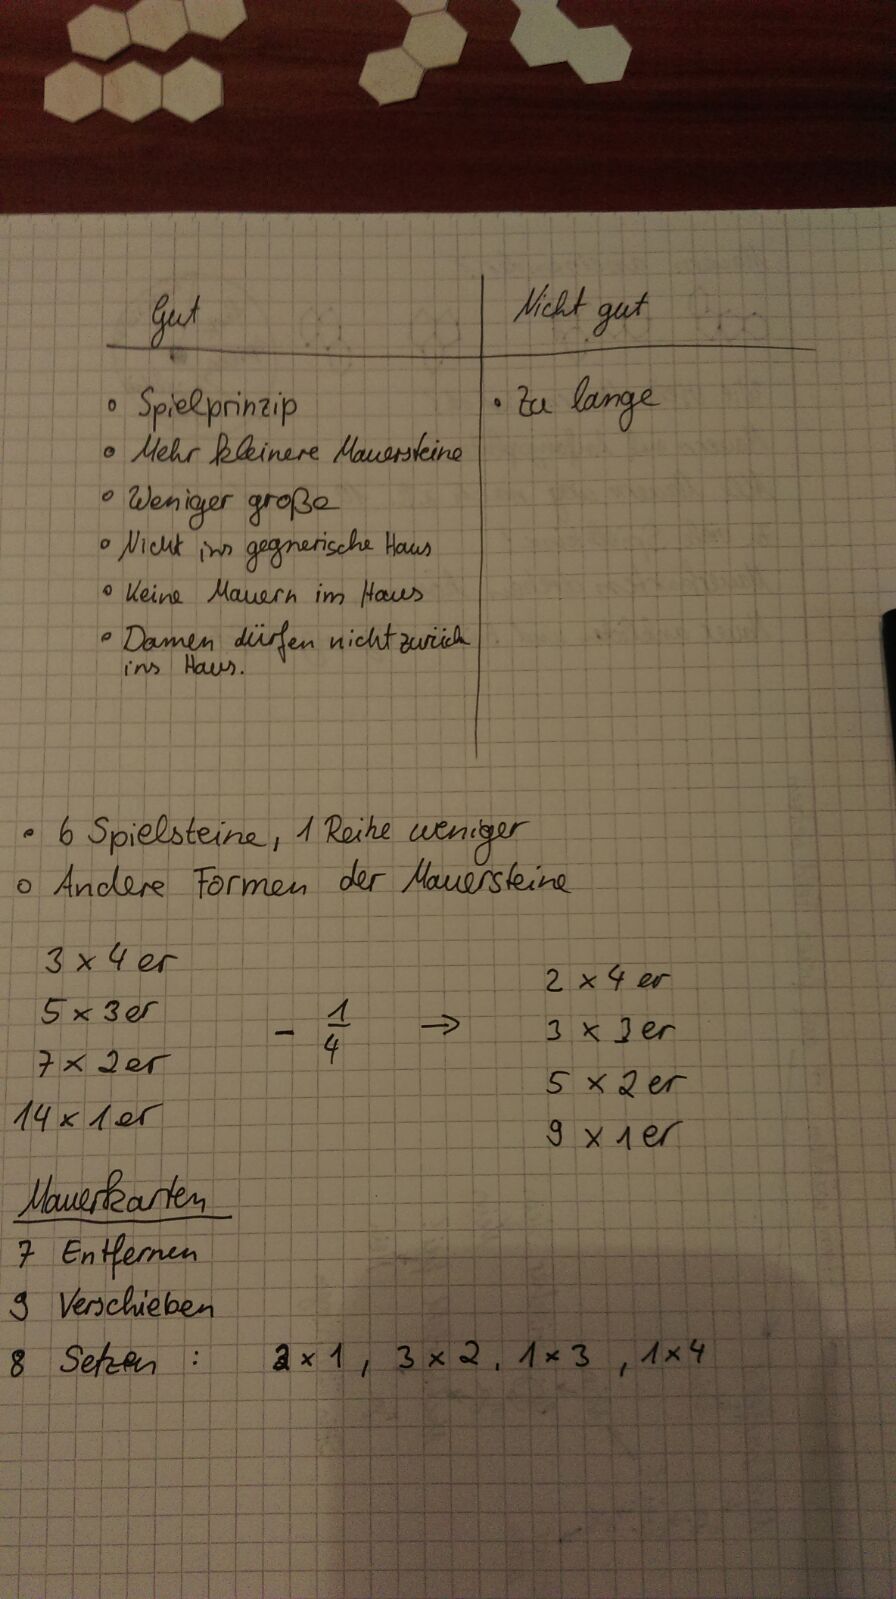 Gut
Nicht gut
• Spielprinzip
• Zu lange
• Mehr kleinere Mauersteine
• Weniger große
• Nicht ins gegnerische Haus
• Keine Mauern im Haus
• Damen dürfen nicht zurück
ins Haus.
• 6 Spielsteine, 1 Reihe weniger
• Andere Formen der Mauersteine
3 x 4er
5 x 3er
7 x 2er
14 x 1er
- 1/4 →
2 x 4er
3 x 3er
5 x 2er
9 x 1er
Mauerkarten
7 Entfernen
9 Verschieben
8 Setzen : x 1, 3 x 2, 1 x 3, 1 x 4